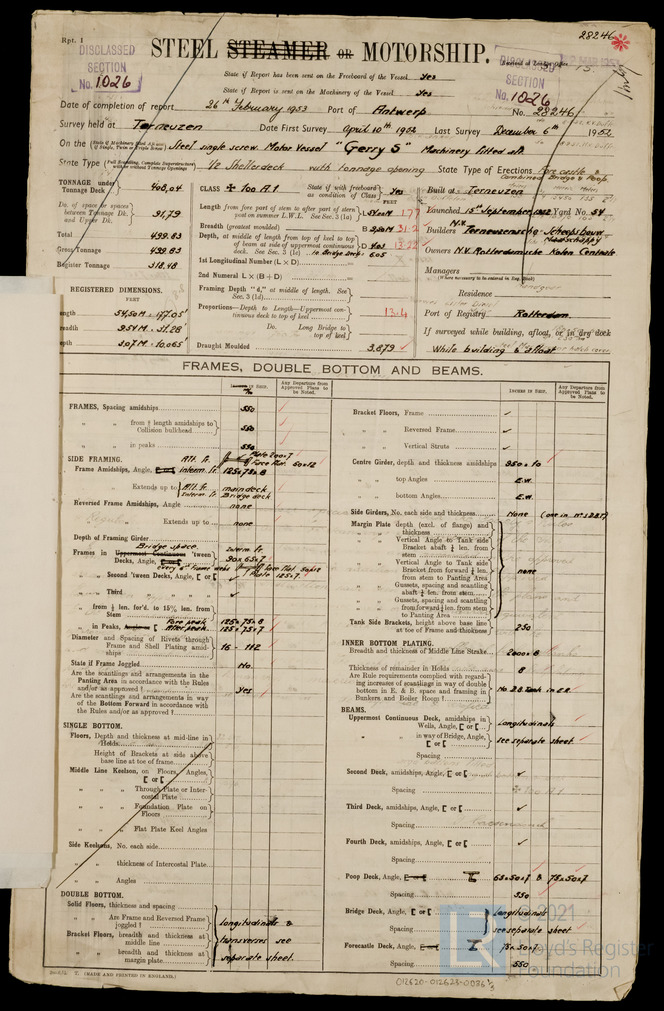 Rpt. 1
28246
DISCLASSED
SECTION
No. 1026
STEEL STEAMER OR MOTORSHIP.
DISCLASSED
SECTION
No. 1026
State if Report has been sent on the Freeboard of the Vessel yes
State if Report has been sent on the Machinery of the Vessel Yes
Date of completion of report 26th February 1953 Port of Antwerp No. 28246
Survey held at Terneuzen Date First Survey April 10th 1952 Last Survey December 6th 1952
On the Steel single screw Motor Vessel "Gerry S" Machinery fitted aft
State Type 1/2 Shelterdeck with tonnage opening State Type of Erections Forecastle &
Combined Bridge & Poop
TONNAGE under Tonnage Dk. 408,04
Do. of space or spaces between Tonnage Dk. and Upper Dk. 91,79
Total 499.83
Gross Tonnage 499.83
Register Tonnage 318.48
REGISTERED DIMENSIONS.
FEET
ngth 54,50M = 177.05'
readth 9.54M = 31.28'
epth 3,07M = 10,065'
CLASS ✠ 100 A.1 State if with freeboard as condition of Class Yes
FEET
Length from fore part of stem to after part of stern post on summer L.W.L. See Sec. 3 (1a) 177
Breadth (greatest moulded) B 31.2
Depth, at middle of length from top of keel to top of beam at side of uppermost continuous deck. See Sec. 3 (1c) to Bridge Deck: 6.05
1st Longitudinal Number (L × D)
2nd Numeral L × (B + D)
Framing Depth "d," at middle of length. See Sec. 3 (1d)
Proportions—Depth to Length—Uppermost continuous deck to top of keel 13.4
Do. Long Bridge to top of keel
Draught Moulded 3,879
Built at Terneuzen
Launched 15th September 1952 Yard No. 54
Builders N.V. Terneuzensche Scheepsbouw Maatschappy
Owners N.V. Rotterdamsche Kolen Centrale
Managers
(Where necessary to be entered in Reg. Book)
Residence
Port of Registry Rotterdam.
If surveyed while building, afloat, or in dry dock
While building & afloat
FRAMES, DOUBLE BOTTOM AND BEAMS.
Any Departure from Approved Plans to be Noted.
INCHES IN SHIP.
Any Departure from Approved Plans to be Noted.
FRAMES, Spacing amidships 550
" " from ⅗ length amidships to Collision bulkhead 550
" " in peaks 550
SIDE FRAMING.
Frame Amidships, Angle, Interm. fr. 125.75.8
" " Extends up to Alt. fr. maindeck
Interm. fr. Bridge deck
Reversed Frame Amidships, Angle none
" " Extends up to none
Depth of Framing Girder
Bridge space.
Frames in Uppermost Continuous 'tween Decks, Angle, [ or [ Interm. fr. 90x65x7
" " Second 'tween Decks, Angle, [ or [
" " Third " "
" " from ⅕ len. for'd. to 15% len. from Stem
" " in Peaks, Angle or [ Fore peak 125.75.8
After peak 125.75.7
Diameter and Spacing of Rivets through Frame and Shell Plating amidships 16 - 112
State if Frame Joggled No.
Are the scantlings and arrangements in the Panting Area in accordance with the Rules and/or as approved? Yes
Are the scantlings and arrangements in way of the Bottom Forward in accordance with the Rules and/or as approved?
SINGLE BOTTOM.
Floors, Depth and thickness at mid-line in Holds
" Height of Brackets at side above base line at toe of frame
Middle Line Keelson, on Floors, Angles, [ or [
" " " Through Plate or Intercostal Plate
" " " Foundation Plate on Floors
" " " Flat Plate Keel Angles
Side Keelsons, No. each side
" " thickness of Intercostal Plate
" " Angles
DOUBLE BOTTOM.
Solid Floors, thickness and spacing
" " Are Frame and Reversed Frame joggled?
Bracket Floors, breadth and thickness at middle line
" " breadth and thickness at margin plate
longitudinals &
transverses see
separate sheet.
Bracket Floors, Frame
" " Reversed Frame
" " Vertical Struts
Centre Girder, depth and thickness amidships 950 x 10
" " top Angles E.W.
" " bottom Angles E.W.
Side Girders, No. each side and thickness None
Margin Plate depth (excl. of flange) and thickness
" " Vertical Angle to Tank side Bracket abaft ¼ len. from stem
" " Vertical Angle to Tank side Bracket from forward ¼ len. from stem to Panting Area
" " Gussets, spacing and scantling abaft ¼ len. from stem
" " Gussets, spacing and scantling from forward ¼ len. from stem to Panting Area
none
Tank Side Brackets, height above base line at toe of Frame and thickness 250
INNER BOTTOM PLATING.
Breadth and thickness of Middle Line Strake 2000 x 8
Thickness of remainder in Holds 8
Are Rule requirements complied with regarding increases of scantlings in way of double bottom in E. & B. space and framing in Bunkers and Boiler Room?
BEAMS.
Uppermost Continuous Deck, amidships in Wells, Angle, [ or [ Longitudinals
" " in way of Bridge, Angle, [ or [ see separate sheet
Spacing
Second Deck, amidships, Angle, [ or [
Spacing
Third Deck, amidships, Angle, [ or [
Spacing
Fourth Deck, amidships, Angle, [ or [
Spacing
Poop Deck, Angle, [ or [ 65x50x7 & 75x50x7
Spacing 550
Bridge Deck, Angle, [ or [ Longitudinals
Spacing see separate sheet
Forecastle Deck, Angle, [ or [ 75x50x7
Spacing 550
T. (MADE AND PRINTED IN ENGLAND.)
© 2021
Lloyd's Register
Foundation
012620-012625-0086 1/3